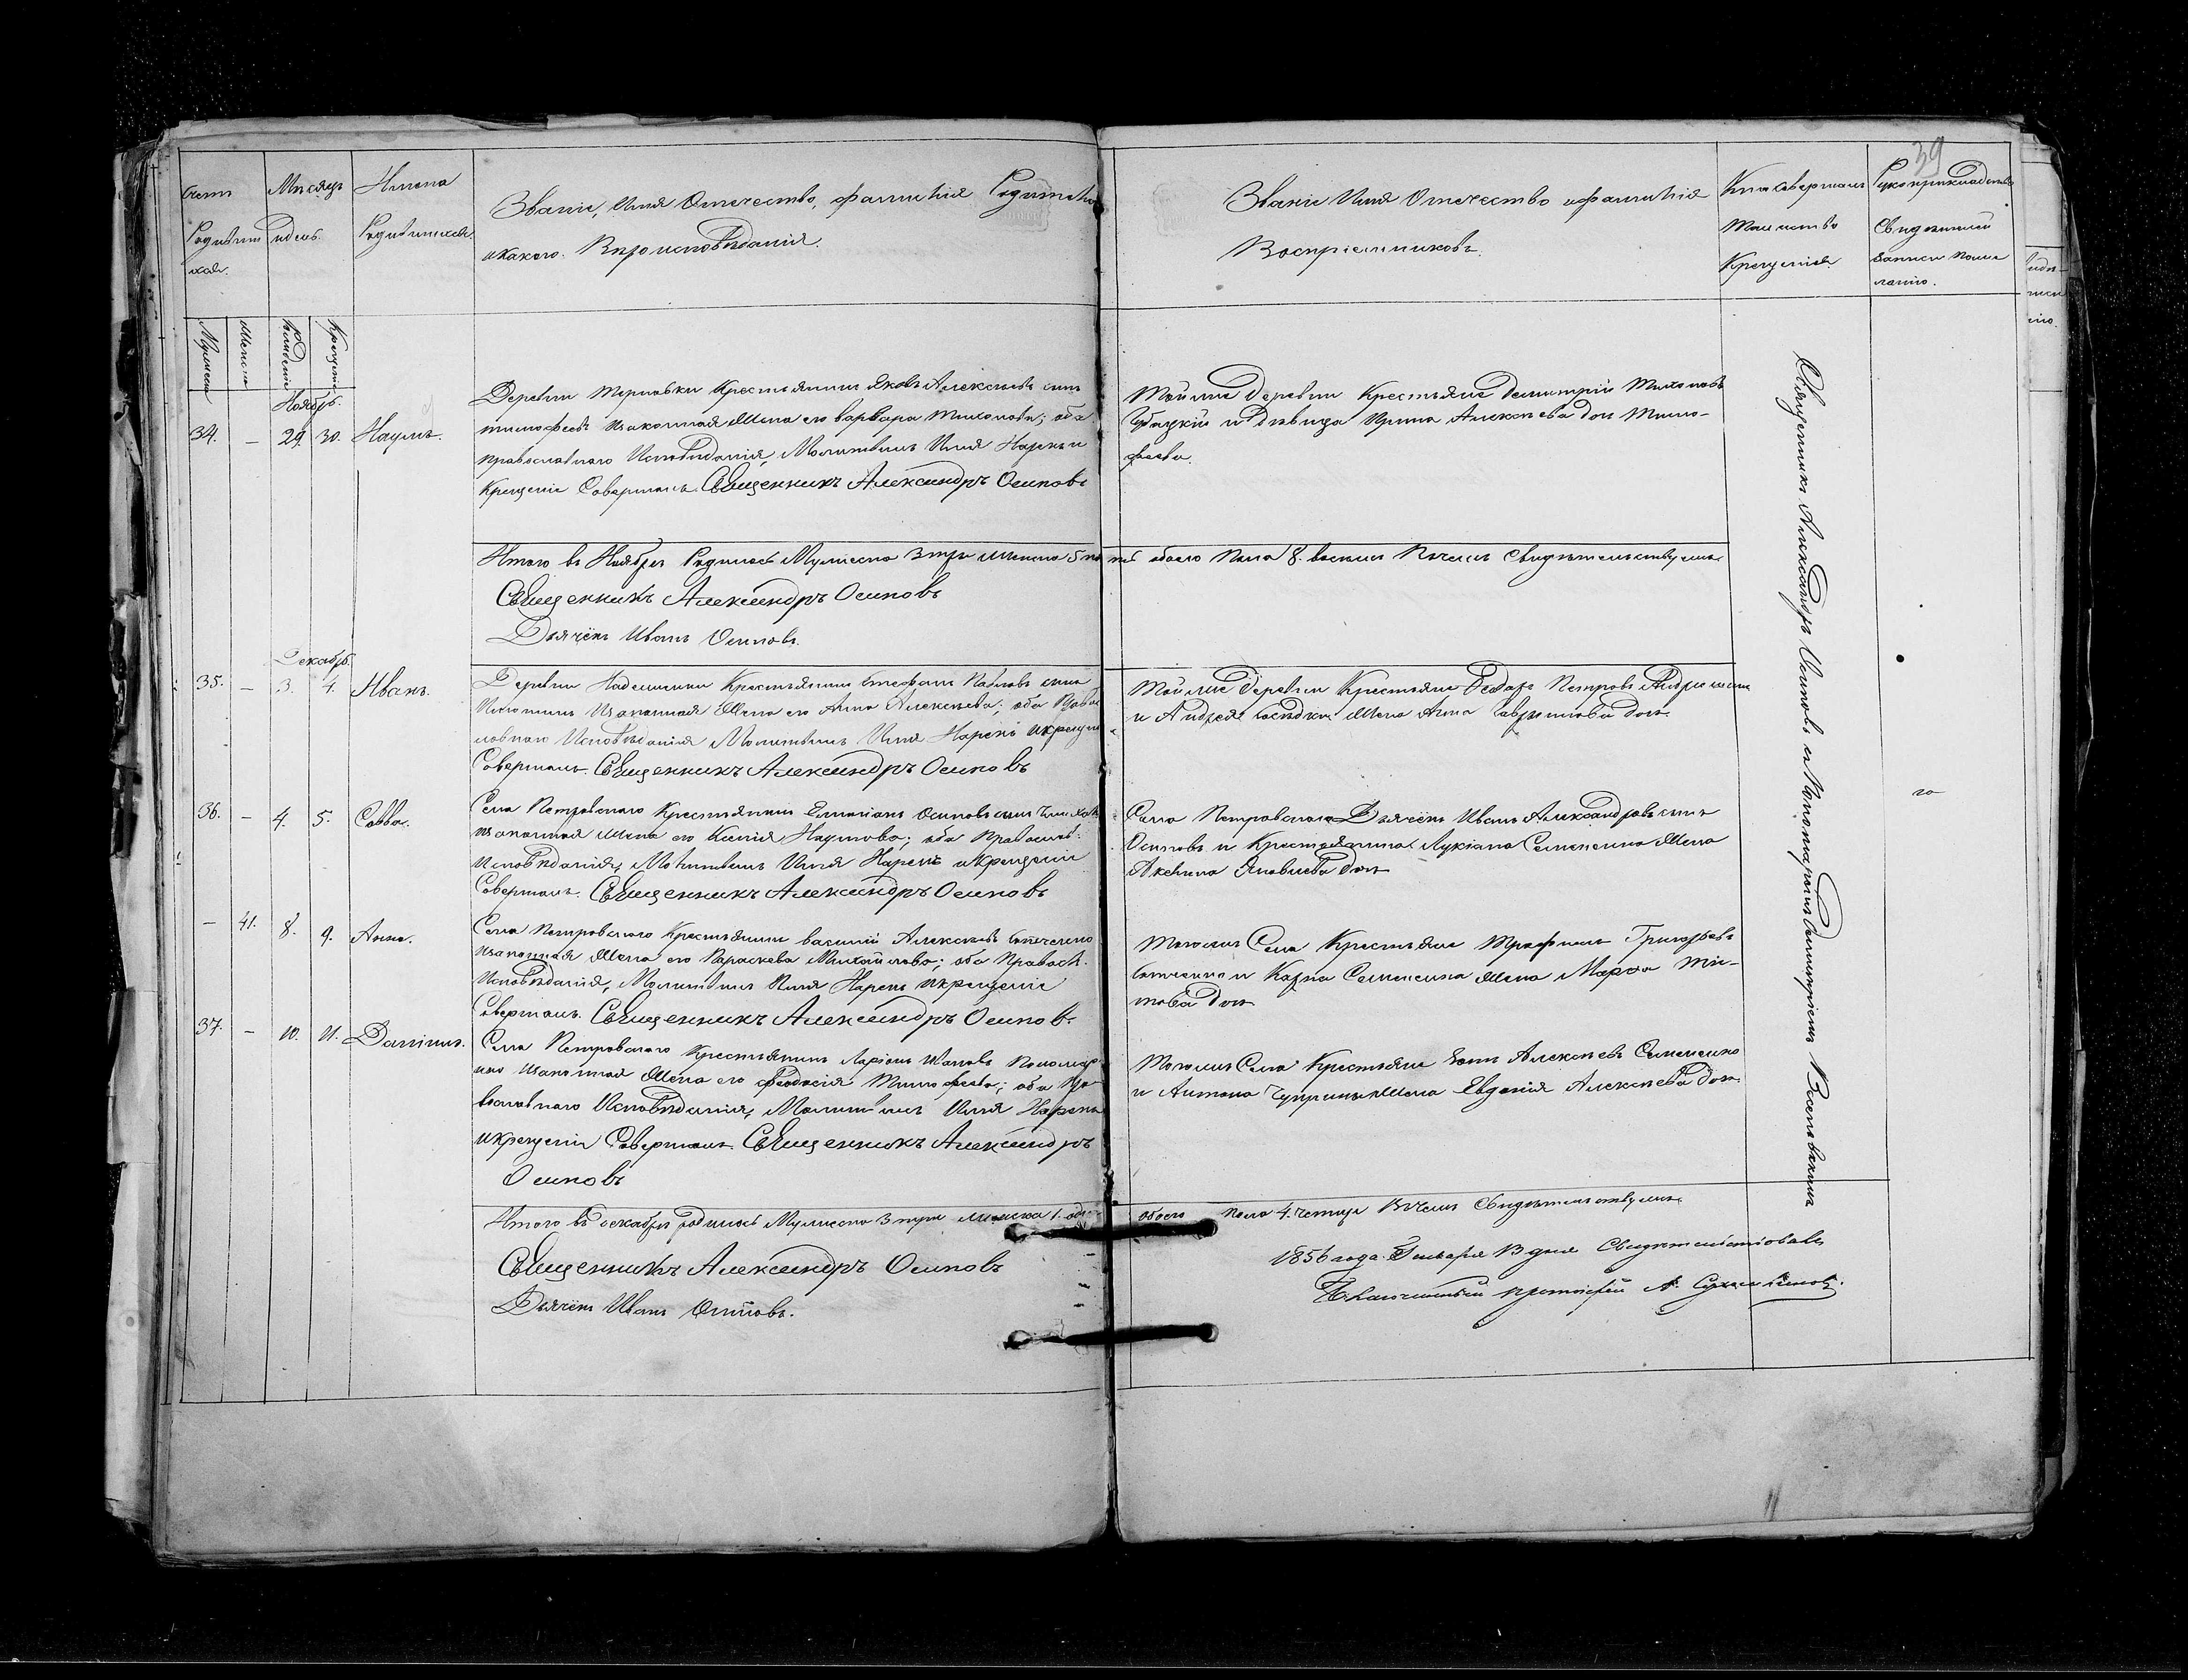 39
Счетъ Родившихся.
Мѣсяцъ и день.
Имена Родившихся.
Званіе, Имя Отечество, фамилія Родителей
и какого Вѣроисповѣданія.
Званіе Имя Отечество и фамилія
Воспріемниковъ.
Кто совершалъ
таинство
Крещенія.
Рукоприкладство
Свидѣтелей
записи по же
ланію.
Мужеска
Женска
Рожденіе
Крещеніе
Ноябрь.
34. – 29. 30. Наумъ.
Деревни Терновки Крестьянинъ Яковъ Алексѣевъ сынъ
Тимофеевъ Изаконная Жена его Варвара Тихонова; оба
православнаго Исповѣданія, Молитвилъ Имя Нарекъ и
Крещеніе Совершалъ Священникъ Александръ Осиповъ
Той же деревни Крестьяне Димитрій Тихоновъ
и Дѣвица Ирина Алексѣева дочь Тимо-
феева.
Итого въ Ноябрѣ Родилось Мужеска 3 три женска 5 пять обоего Пола 8. восемь Въ чемъ Свидѣтельствуемъ
Священникъ Александръ Осиповъ
Дьячёкъ Иванъ Осиповъ.
Декабрь.
35. – 3. 4. Иванъ.
Деревни Крестьянинъ Стефанъ Павловъ сынъ
Изаконная Жена его Анна Алексѣева; оба Правос
лавнаго Исповѣданія Молитвилъ Имя Нарекъ и крещеніе
Совершалъ Священникъ Александръ Осиповъ
Той же деревни Крестьяне Федоръ Петровъ
и Андрея Жена Анна Гаврилова дочь.
36. – 4. 5. Савва.
Села Петровскаго Крестьянинъ Емиліанъ Осиповъ сынъ
Изаконная жена его Ксенія Наумова; оба Православ:
Исповѣданія, Молитвилъ Имя Нарекъ и Крещеніе
Совершалъ. Священникъ Александръ Осиповъ
Села Петровскаго Дьячёкъ Иванъ Александровъ сынъ
Осиповъ и Крестьянина Лукіана Семенена Жена
Акелина Яковлева дочь
– 41. 8. 9. Анна.
Села Петровскаго Крестьянинъ Василій Алексѣевъ
Изаконная Жена его Параскева Михайлова; оба Правосл.
Исповѣданія, Молитвилъ Имя Нарекъ и крещеніе
Совершалъ. Священникъ Александръ Осиповъ.
Тогожъ Села Крестьяне Трофимъ Григорьевъ
и Карпа Семененка Жена Марфа Тіи-
това дочь
37. – 10. 11. Даніилъ.
Села Петровскаго Крестьянинъ Ларіонъ Ивановъ
Изаконная Жена его Феодосія Тимофеева; оба Пра-
вославнаго Исповѣданія, Молитвилъ Имя Нарекъ
и крещеніе Совершалъ Священникъ Александръ
Осиповъ
Тогожъ Села Крестьяне Алексѣевъ Семененко
и Антона Чуприны Жена Евдокія Алексѣева дочь.
Итого въ декабрѣ родилось Мужеска 3 три женска 1. одна обоего пола 4. четыре Въ чемъ Свидѣтельствуемъ
Священникъ Александръ Осиповъ
Дьячёкъ Иванъ Осиповъ.
1856 года Генваря 13 дня Свидѣтельствовалъ
протоіерей А.
Священникъ Александръ Осиповъ съ Пономаремъ Димитріемъ